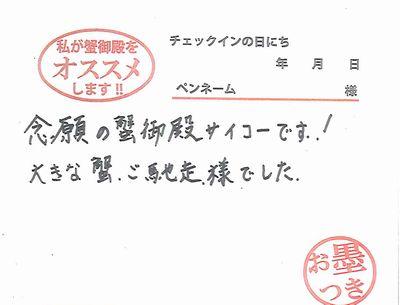 私が蟹御殿を
オススメ
します!!
チェックインの日にち
年 月 日
ペンネーム 様
念願の蟹御殿サイコーです!
大きな蟹、ご馳走様でした。
お墨
つき